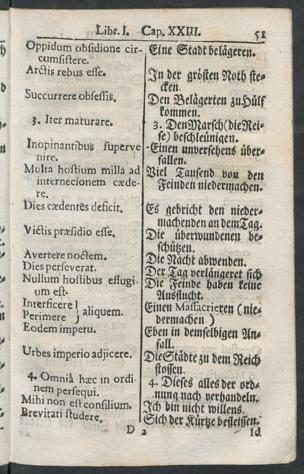 Libr. I. Cap. XXIII. 51
Oppidum obsidione cir-
cumsistere.
Arctis rebus esse.
Succurrere obsessis.
3. Iter maturare.
Inopinantibus superve-
nire.
Multa hostium milla ad
internecionem cæde-
re.
Dies cædentes deficit.
Victis præsidio esse.
Avertere noctem.
Dies perseverat.
Nullum hostibus effugi-
um est.
Interficere } aliquem.
Perimere
Eodem impetu.
Urbes imperio adjicere.
4. Omnia hæc in ordi-
nem persequi.
Mihi non est consilium.
Brevitati studere.
Eine Stadt belägeren.
In der grösten Noth ste-
cken.
Den Belägerten zu Hülf
kommen.
3. Den Marsch (die Rei-
se) beschleünigen.
Einen unversehens über-
fallen.
Viel Tausend von den
Feinden niedermachen.
Es gebricht den nieder-
machenden an dem Tag.
Die überwundenen be-
schützen.
Die Nacht abwenden.
Der Tag verlängeret sich
Die Feinde haben keine
Außflucht.
Einen Massacrieren (nie-
dermachen)
Eben in demselbigen An-
fall.
Die Städte zu dem Reich
stossen.
4. Dieses alles der ord-
nung nach verhandeln.
Ich bin nicht willens.
Sich der Kürtze befleissen.
D 2 Id